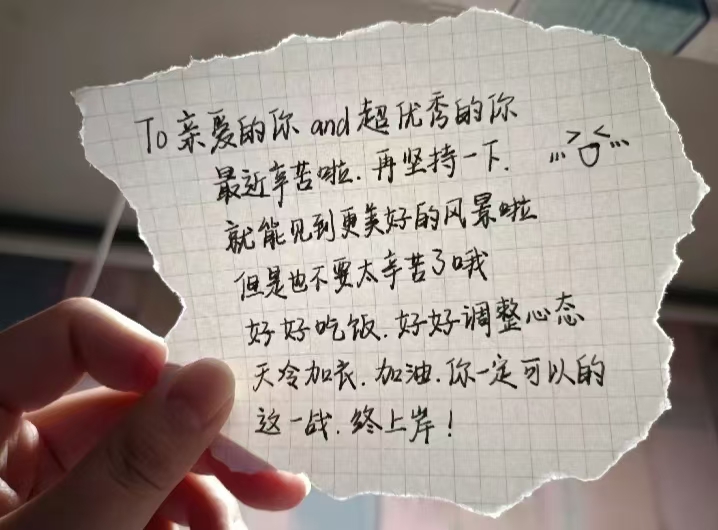 To 亲爱的你 and 超优秀的你
最近辛苦啦.再坚持一下.
就能见到更美好的风景啦
但是也不要太辛苦了哦
好好吃饭.好好调整心态
天冷加衣.加油.你一定可以的
这一战.终上岸!